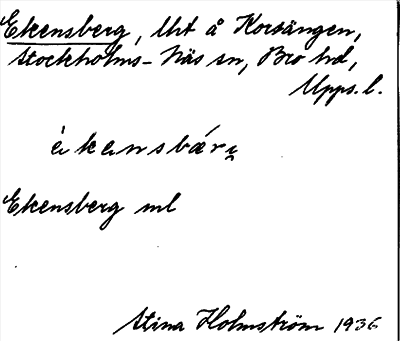 Ekensberg, lht å Korsängen,
Stockholms-Näs sn, Bro hd,
Upps. l.
èkensbærị
Ekensberg ml
Stina Holmström 1936